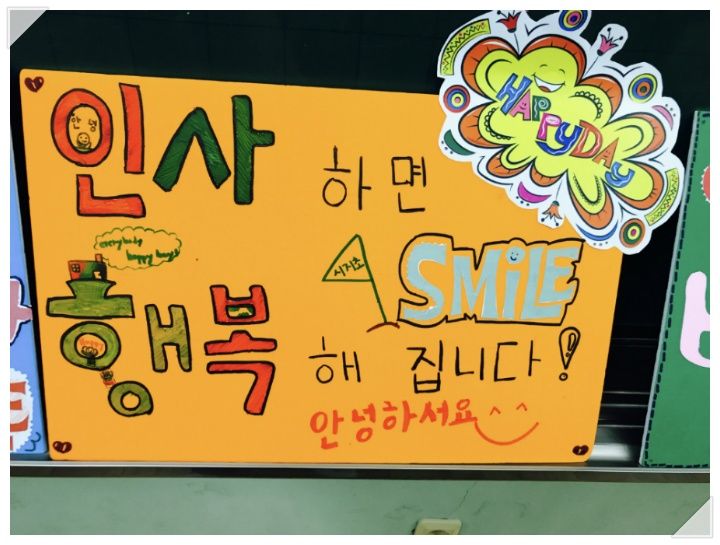 인사 하면
안녕
HAPPY DAY
everybody
happy
시지초
SMILE
행복 해 집니다!
안녕하서요^^